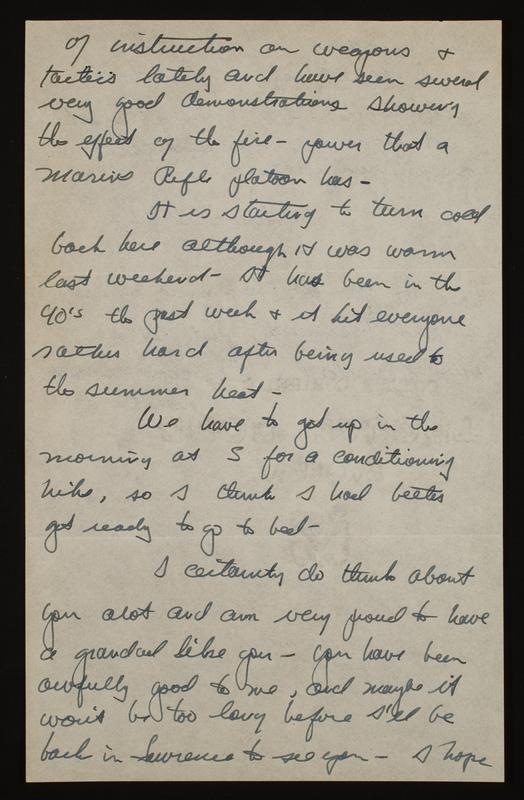 of instruction on weapons &
tactics lately and have seen several
very good demonstrations showing
the effect of the fire - power that a
Marine Rifle platoon has -
It is starting to turn cold
back here although it was warm
last weekend - It has been in the
40's the past week & it hit everyone
rather hard after being used to
the summer heat -
We have to get up in the
morning at 5 for a conditioning
hike, so I think I had better
get ready to go to bed -
I certainly do think about
you alot and am very proud to have
a grandad like you - you have been
awfully good to me, and maybe it
won't be too long before I'll be
back in Lawrence to see you - I hope